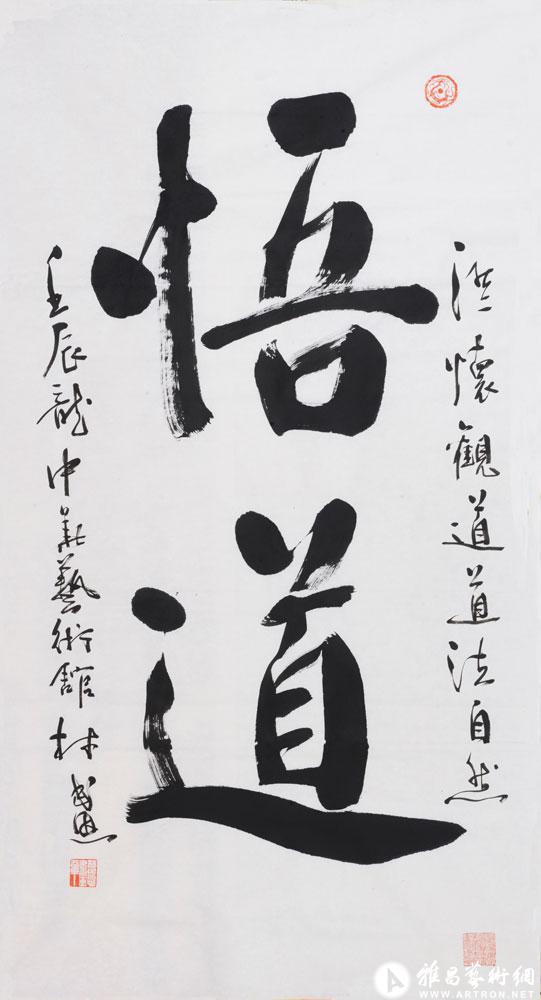 澄懷觀道道法自然
悟道
壬辰龍中華藝術館林
雅昌藝術網
WWW.ARTRON.NET